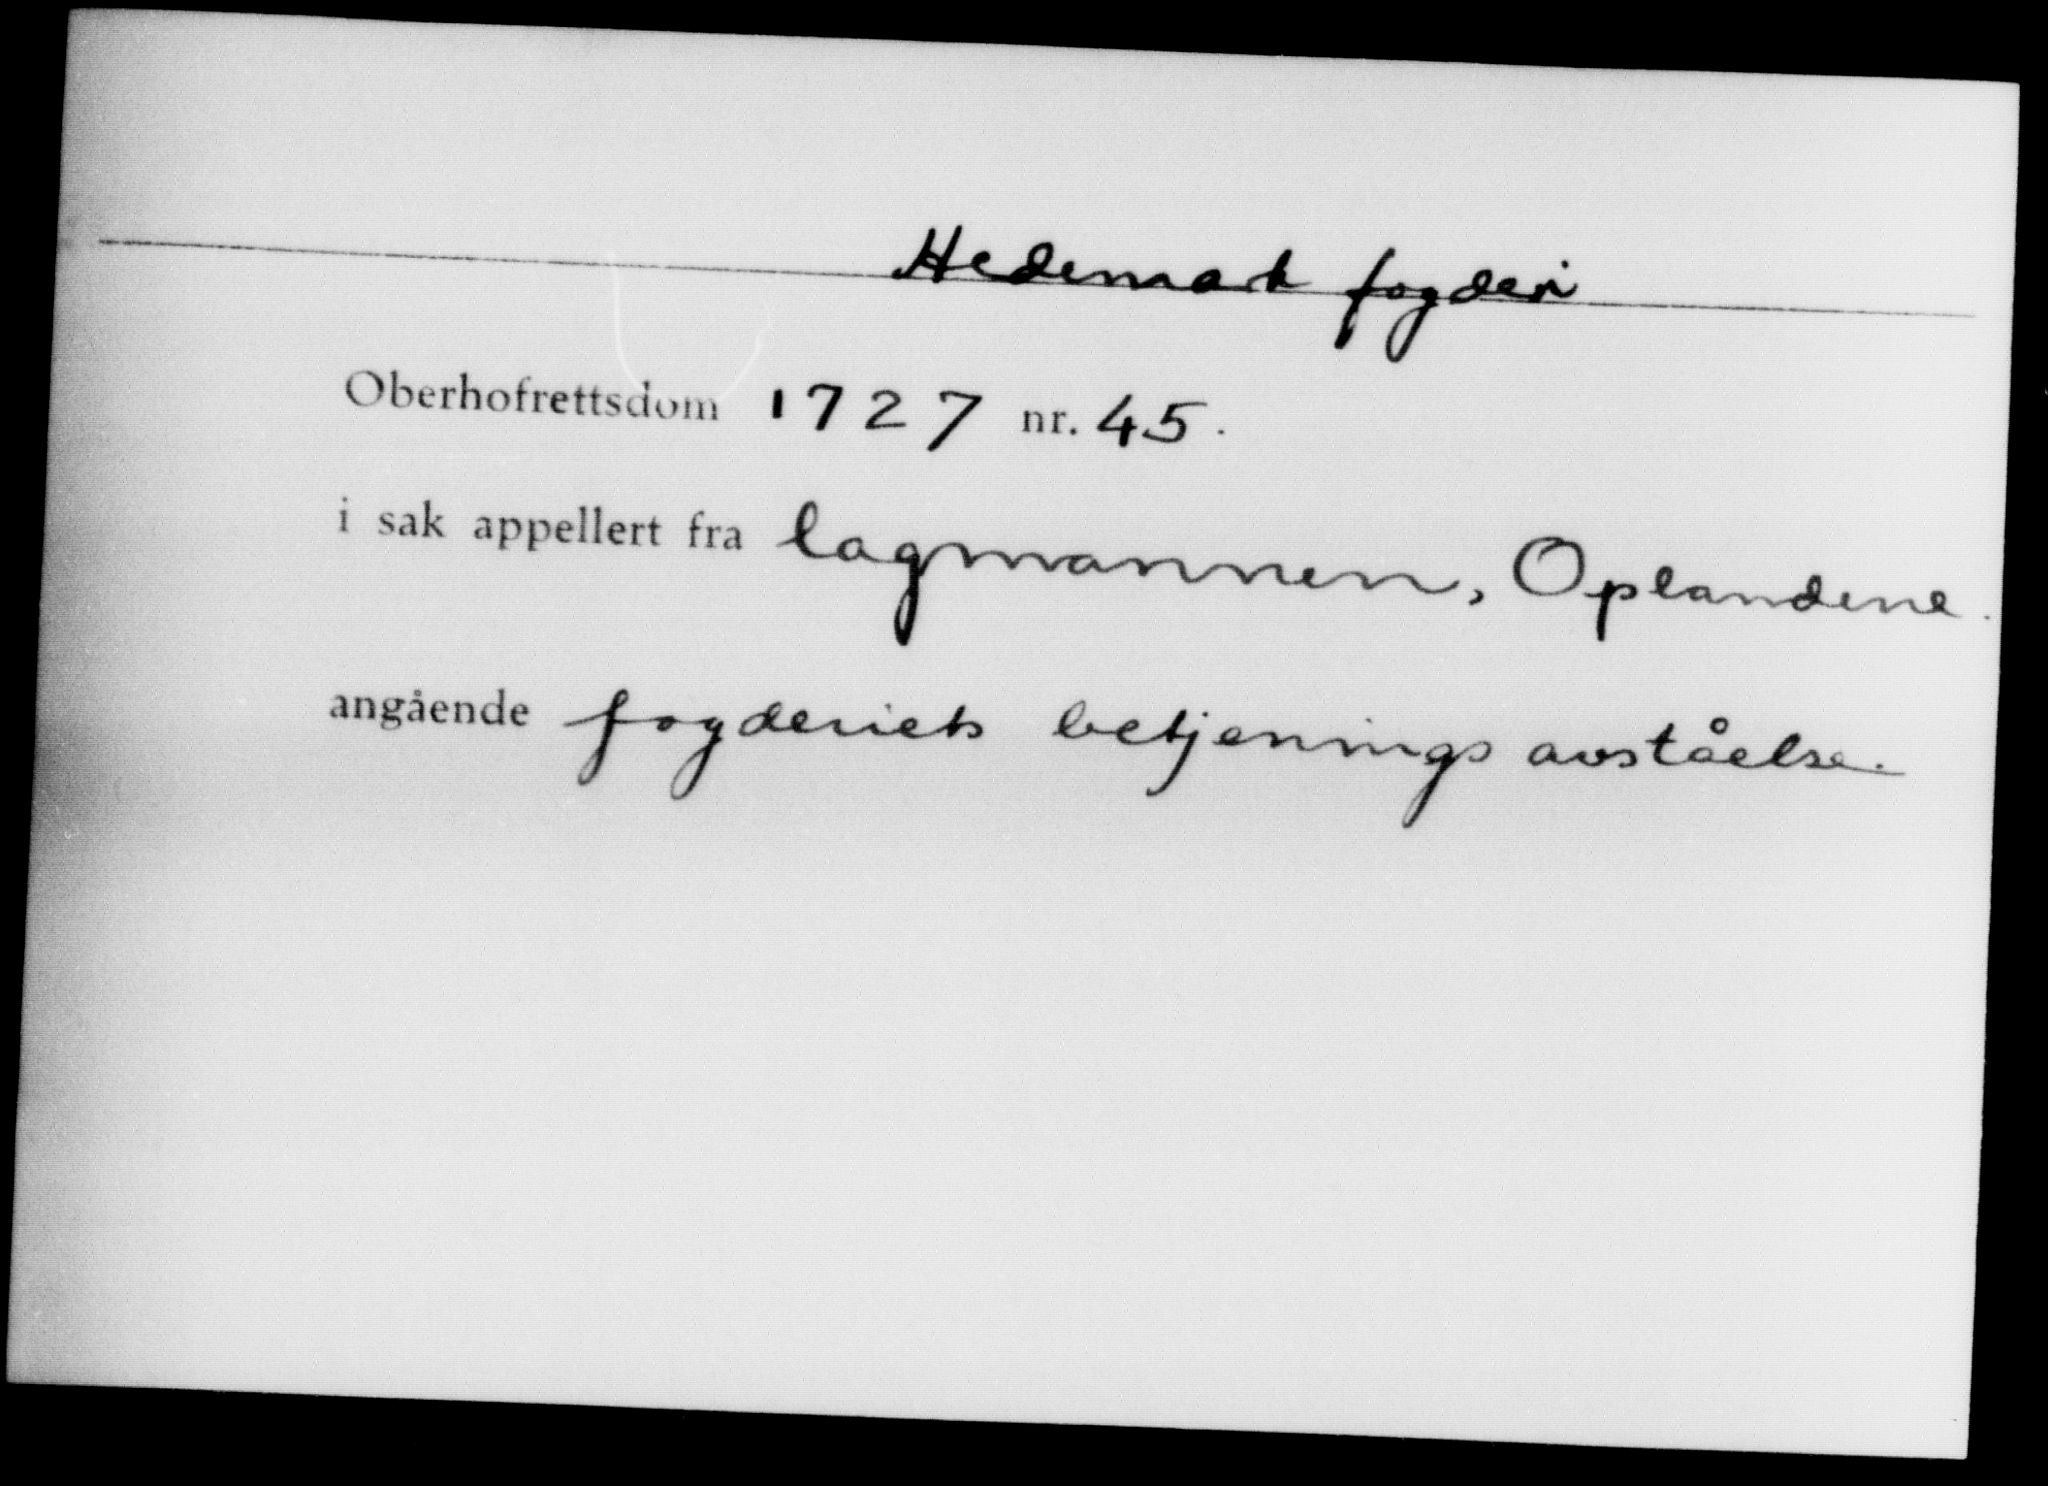 Hedemark fogderi
Oberhofrettsdom 1727 nr. 45.
i sak appellert fra lagmannen, Oplandene.
angående fogderiets betjenings avståelse.